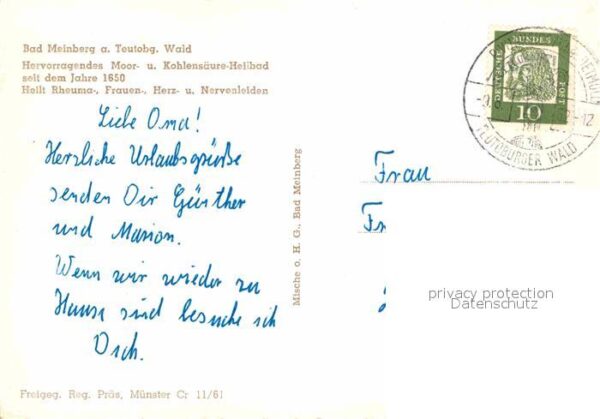 Bad Meinberg a. Teutobg. Wald
Hervorragendes Moor- u. Kohlensäure-Heilbad
seit dem Jahre 1650
Heilt Rheuma-, Frauen-, Herz- u. Nervenleiden
Liebe Oma!
Herzliche Urlaubsgrüße
senden Dir Günther
und Marion.
Wenn wir wieder zu
Hause sind besuche ich
Dich.
Freigeg. Reg. Präs, Münster Cr 11/61
Mische o. H. G., Bad Meinberg
DEUTSCHE
BUNDES
POST
10
TEUTOBURGER WALD
-12
Frau
Fr
privacy protection
Datenschutz